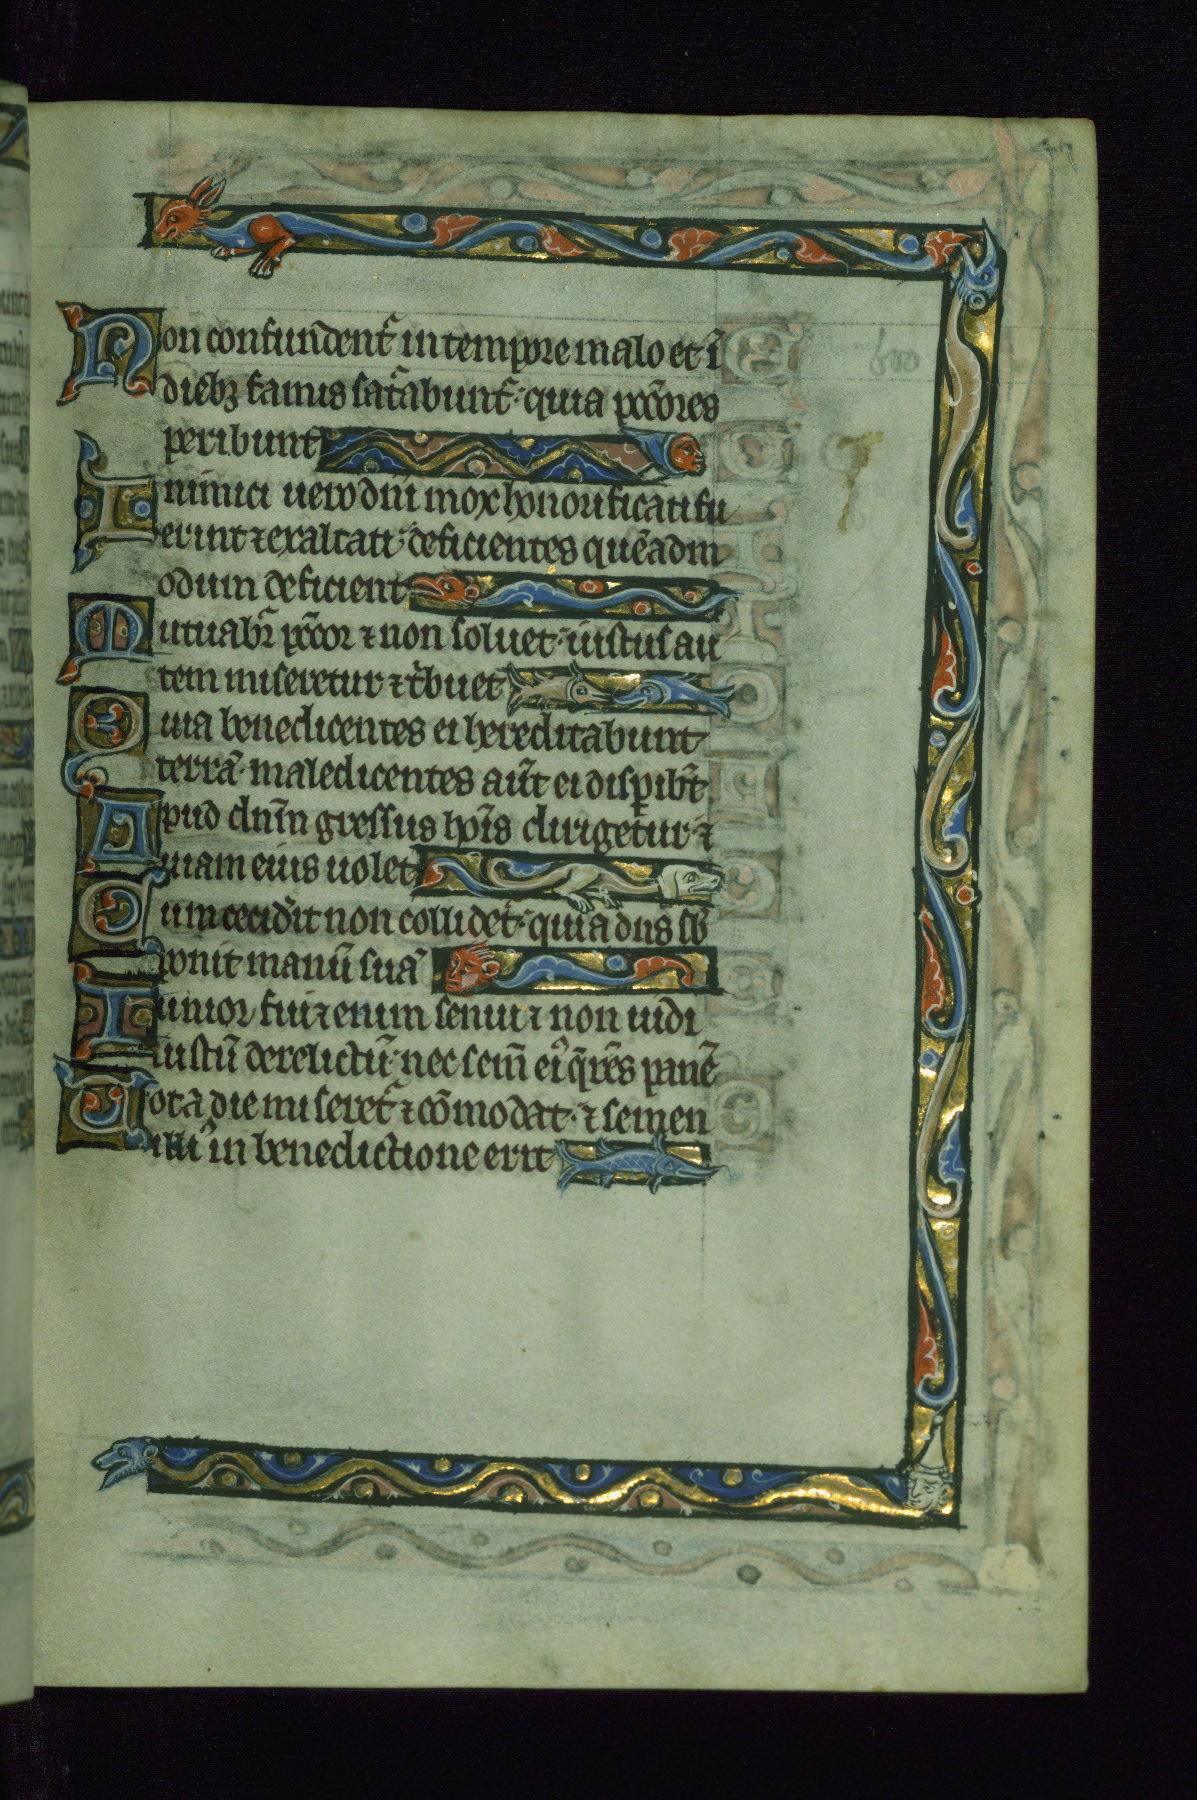 Non confundent᷑ in tempore malo et ī
dieb₃ famis sat᷑abunt᷑ · quia pcc̄ores
peribunt
Inimici uero dn̄i mox honorificati fu
erint ⁊ exaltati · deficientes quēadm
odum deficient
Mutuabr̄ pcc̄or ⁊ non soluet · iustus au
tem miseretur ⁊ t᷑buet
Quia benedicentes ei hereditabunt
terrā · maledicentes aūt ei disp̱ibt̄
Apud dn̄m gressus hoīs dirigetur ⁊
uiam eius uolet
Cum cecid᷑it non collidet᷑ · quia dn̄s sb̄
ponit manū suā
Iunior fui ⁊ enim senui ⁊ non uidi
iustū derelictū · nec sem̄ eiꝰ q̄rēs panē
Tota die miseret᷑ ⁊ cōmodat · ⁊ semen
illiꝰ in benedictione erit